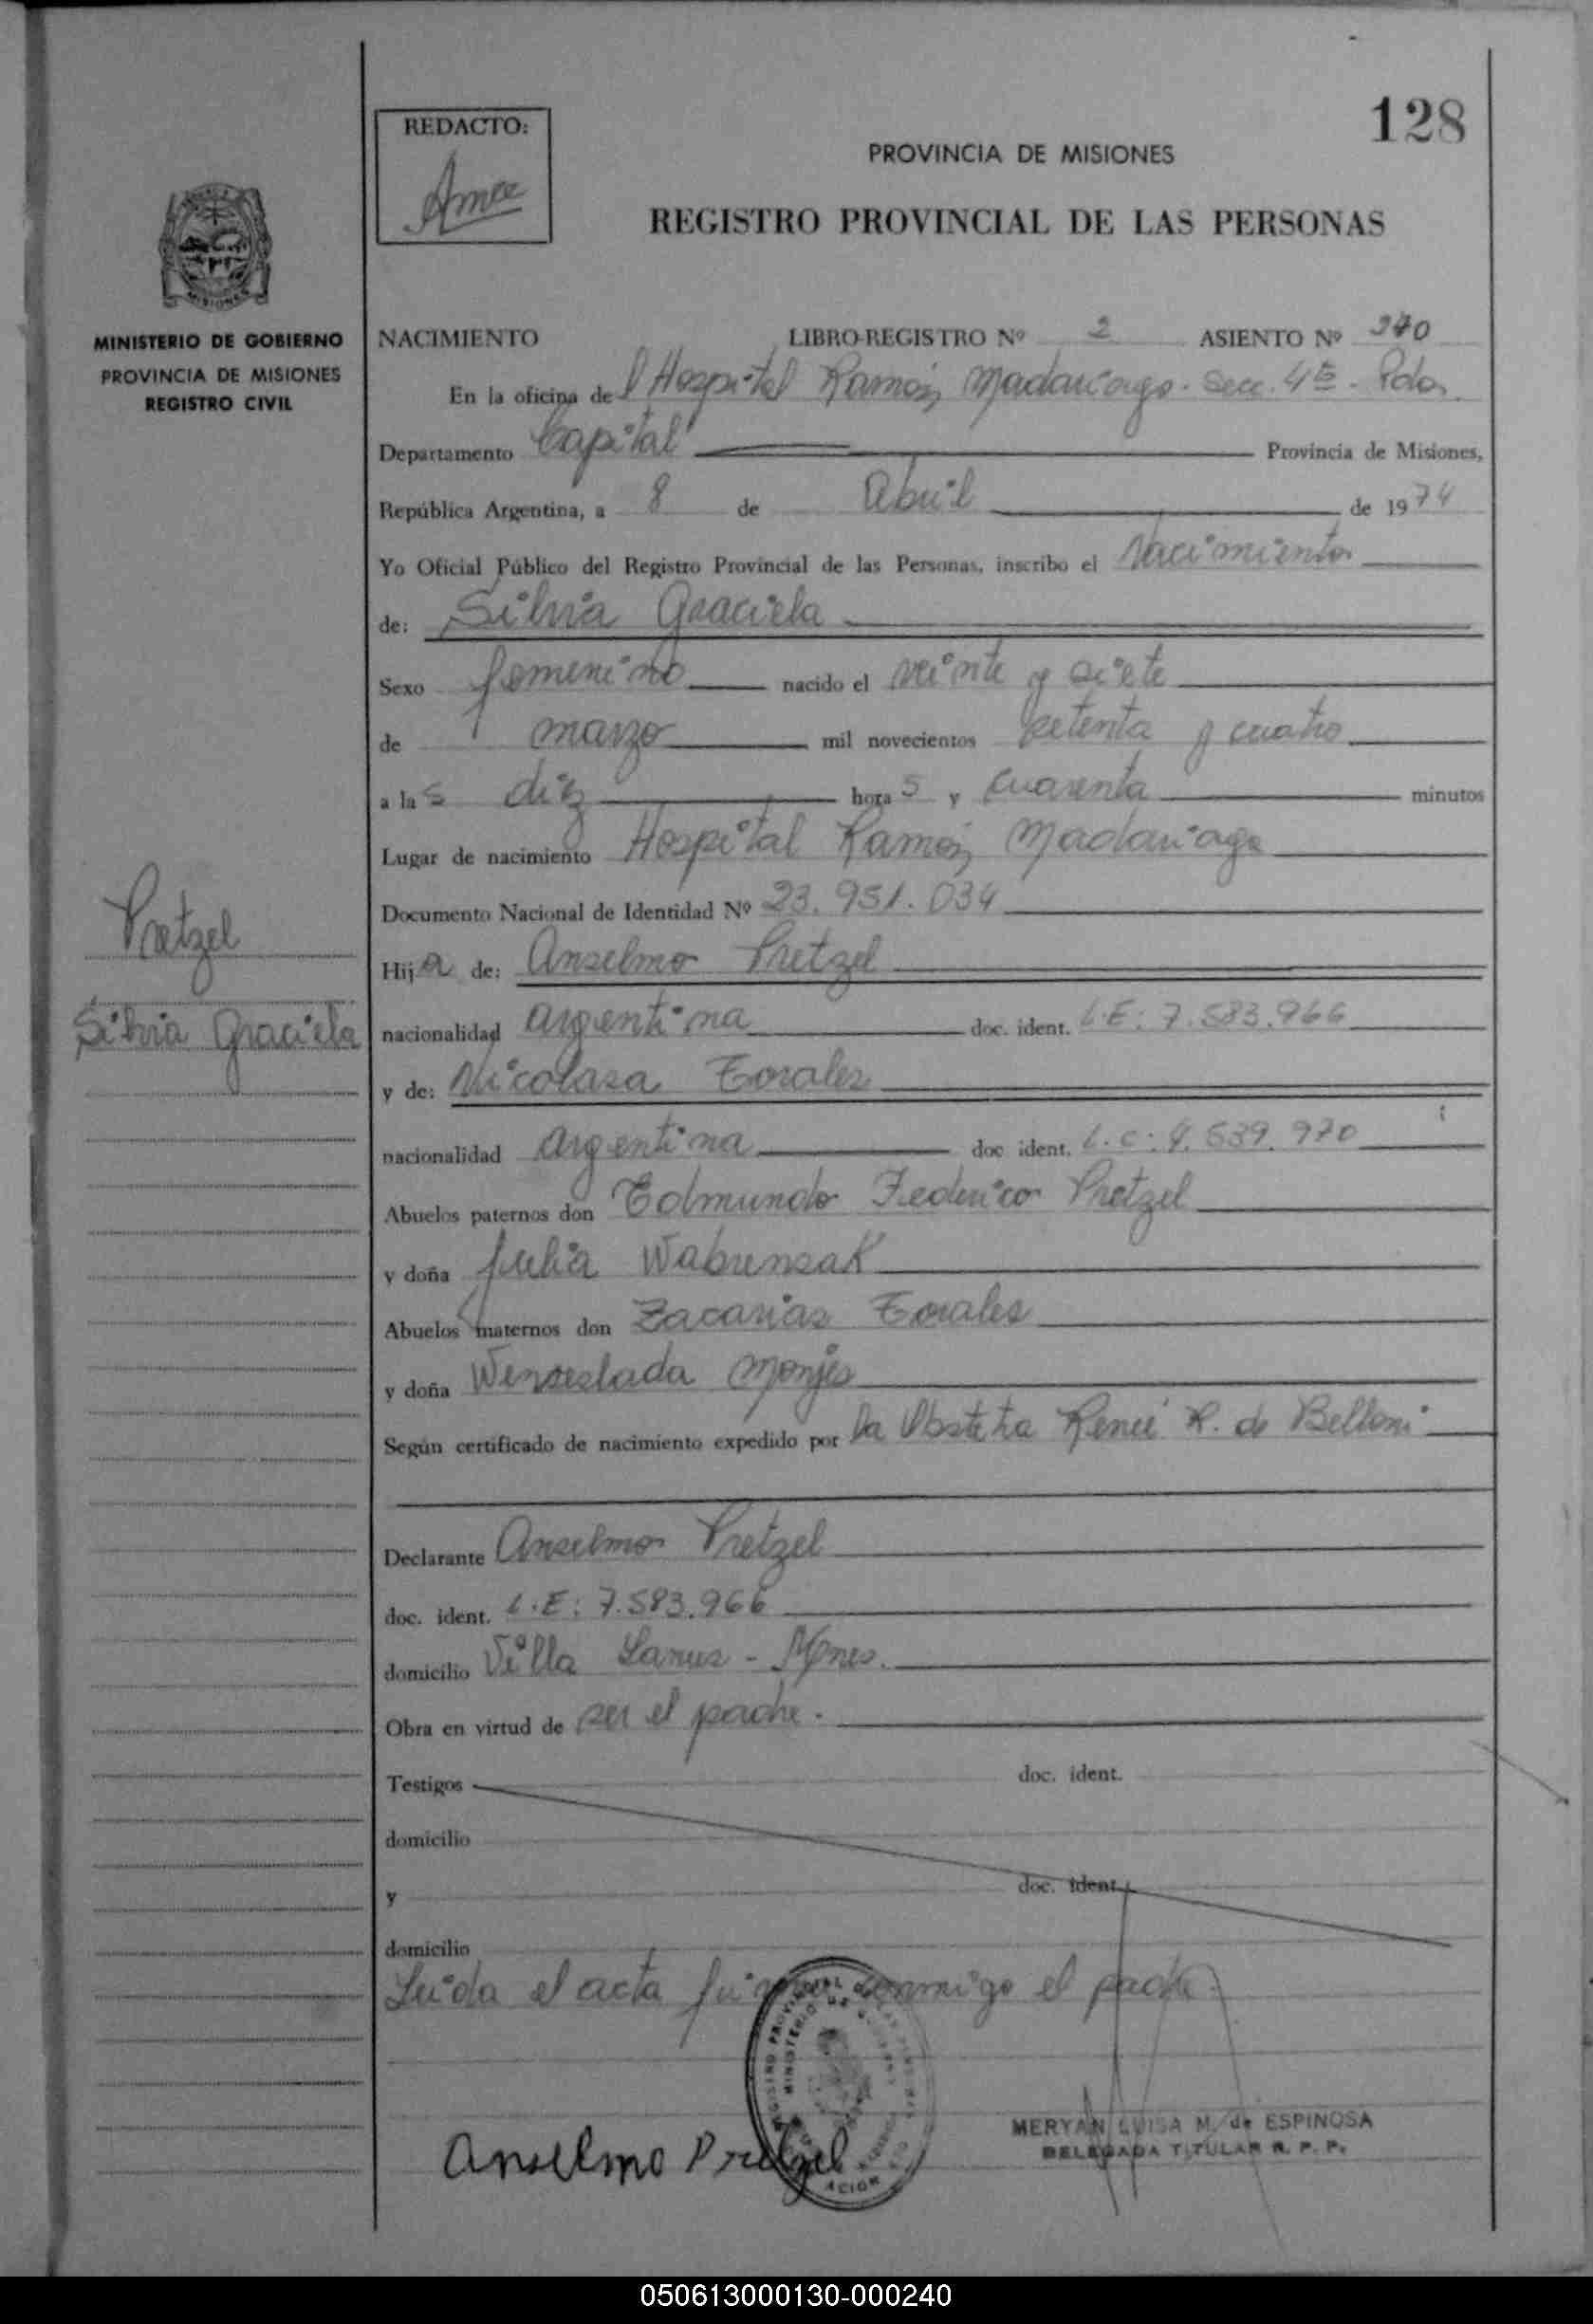 128
REDACTO:
PROVINCIA DE MISIONES
REGISTRO PROVINCIAL DE LAS PERSONAS
MINISTERIO DE GOBIERNO
PROVINCIA DE MISIONES
REGISTRO CIVIL
NACIMIENTO LIBRO-REGISTRO Nº 2 ASIENTO Nº
En la oficina de l Hospital Ramón Madariaga. Secc. 4ta - Pdas.
Departamento Capital Provincia de Misiones,
República Argentina, a 8 de Abril de 1974
Yo Oficial Público del Registro Provincial de las Personas, inscribo el Nacimiento
de: Silvia Graciela
Sexo femenino nacido el veinte y siete
de marzo mil novecientos setenta y cuatro
a las diez horas y cuarenta minutos
Lugar de nacimiento Hospital Ramón Madariaga
Documento Nacional de Identidad Nº 23.951.034
Pretzel
Silvia Graciela
Hija de: Anselmo Pretzel
nacionalidad argentina doc. ident. L.E: 7.583.966
y de: Nicolasa Torales
nacionalidad argentina doc ident. L.C: 4.539.970
Abuelos paternos don Edmundo Federico Pretzel
y doña Julia Wabrensak
Abuelos maternos don Zacarias Torales
y doña Wenseslada Monjes
Según certificado de nacimiento expedido por la Obstetra Reneé R. de Belloni
Declarante Anselmo Pretzel
doc. ident. L.E: 7.583.966
domicilio Villa Lanus - Mnes.
Obra en virtud de ser el padre.
Testigos doc. ident.
domicilio
y doc. ident.
domicilio
Leida el acta firma conmigo el padre.
Anselmo Pretzel
MERYAN LUISA M. de ESPINOSA
DELEGADA TITULAR R. P. P.
050613000130-000240